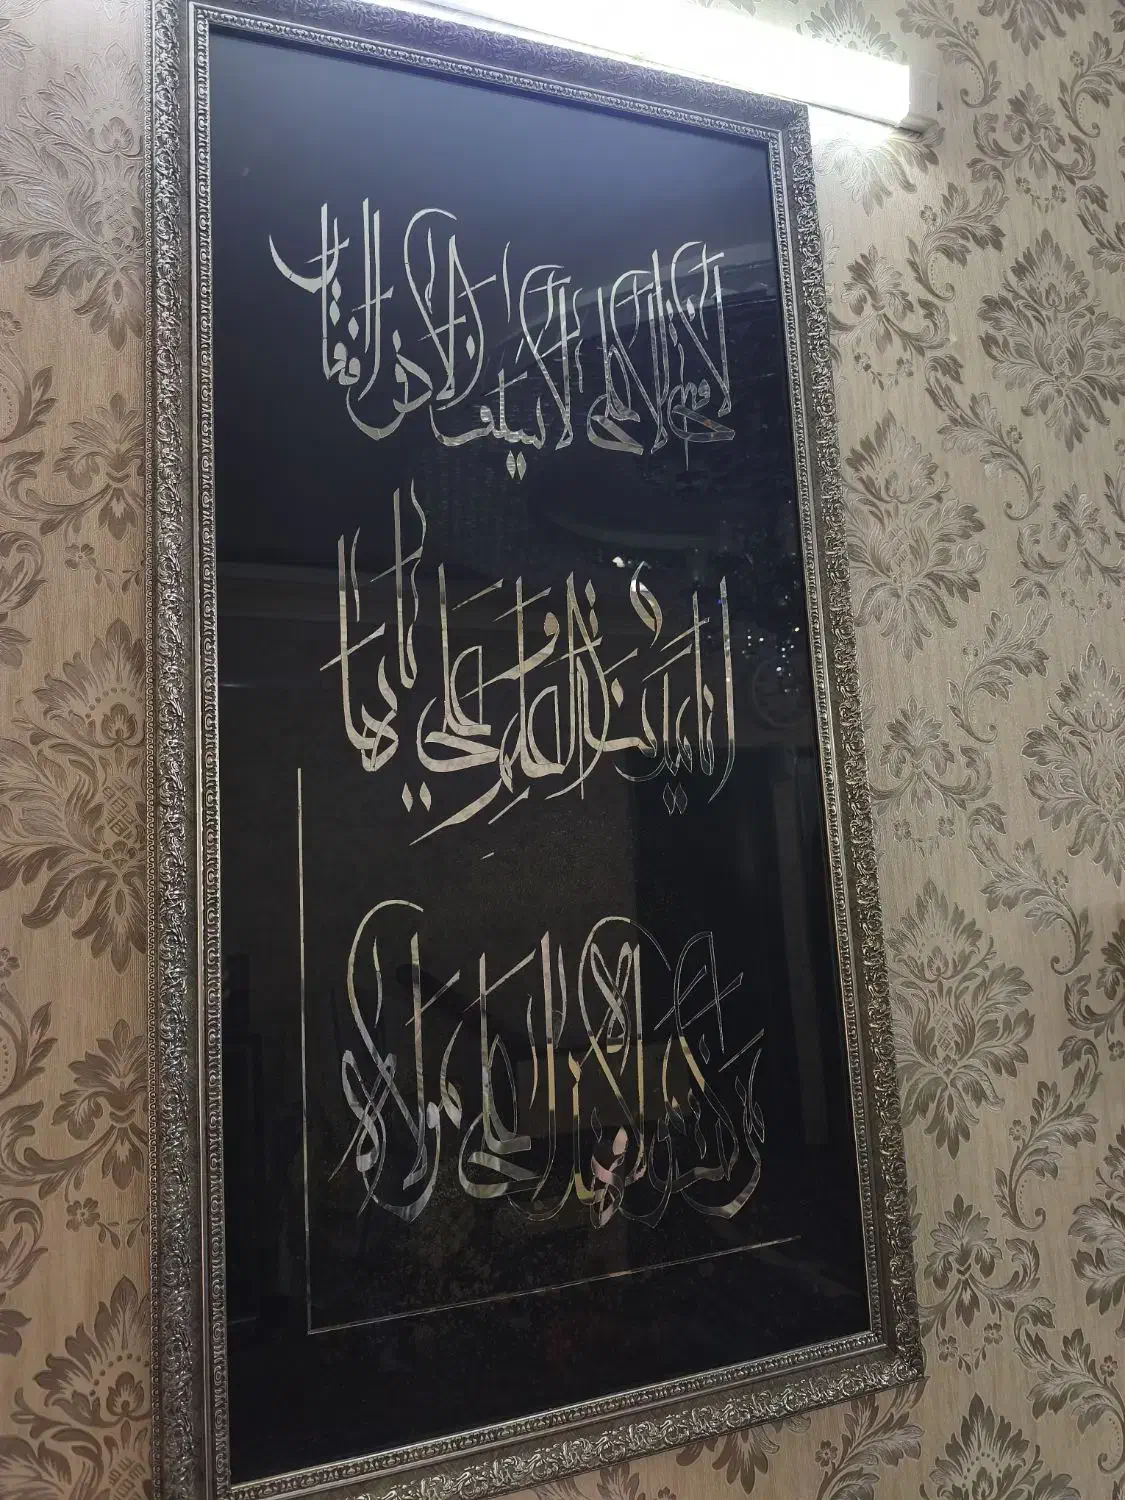 لا فتی الا علی لا سیف الا ذوالفقار
انا مدینة العلم و علی بابها
من کنت مولاه فهذا علی مولاه